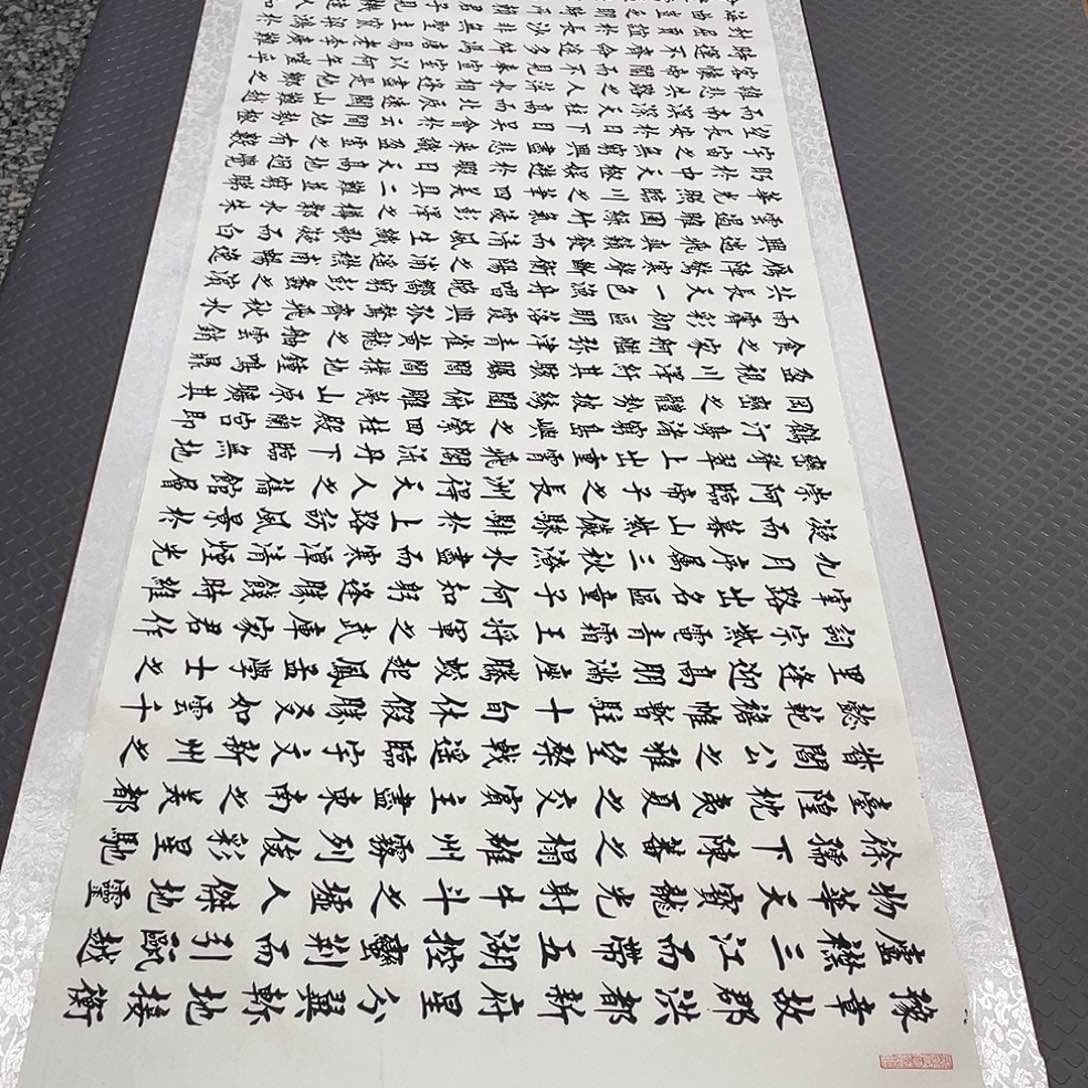 豫章故郡洪都新府星分翼軫地接衡
廬襟三江而帶五湖控蠻荊而引甌越
物華天寶龍光射牛斗之墟人傑地靈
徐孺下陳蕃之榻雄州霧列俊彩星馳
臺隍枕夷夏之交賓主盡東南之美都
督閻公之雅望棨戟遙臨宇文新州之
懿範襜帷暫駐十旬休假勝友如雲千
里逢迎高朋滿座騰蛟起鳳孟學士之
詞宗紫電青霜王將軍之武庫家君作
宰路出名區童子何知躬逢勝餞時維
九月序屬三秋潦水盡而寒潭清煙光
凝而暮山紫儼驂騑於上路訪風景於
崇阿臨帝子之長洲得天人之舊館層
巒聳翠上出重霄飛閣流丹下臨無地
鶴汀鳧渚窮島嶼之縈回桂殿蘭宮即
岡巒之體勢披繡闥俯雕甍山原曠其
盈視川澤紆其駭矚閭閻撲地鐘鳴鼎
食之家舸艦津青雀黃龍之舳雲銷
雨霽彩徹區明落霞與孤鶩齊飛秋水
共長天一色漁舟唱晚響窮彭蠡之濱
雁陣驚寒聲斷衡陽之浦遙襟甫暢逸
興遄飛爽籟發而清風生纖歌凝而白
雲遏睢園綠竹氣凌彭澤之樽鄴水朱
華光照臨川之筆四美具二難並窮睇
眄於中天極娛遊於暇日天高地迥覺
宇宙之無窮興盡悲來識盈虛之有數
望長安於日下目吳會於雲間地勢極
而南溟深天柱高而北辰遠關山難越
誰悲失路之人萍水相逢盡是他鄉之
客懷帝閽而不見奉宣室以何年嗟乎